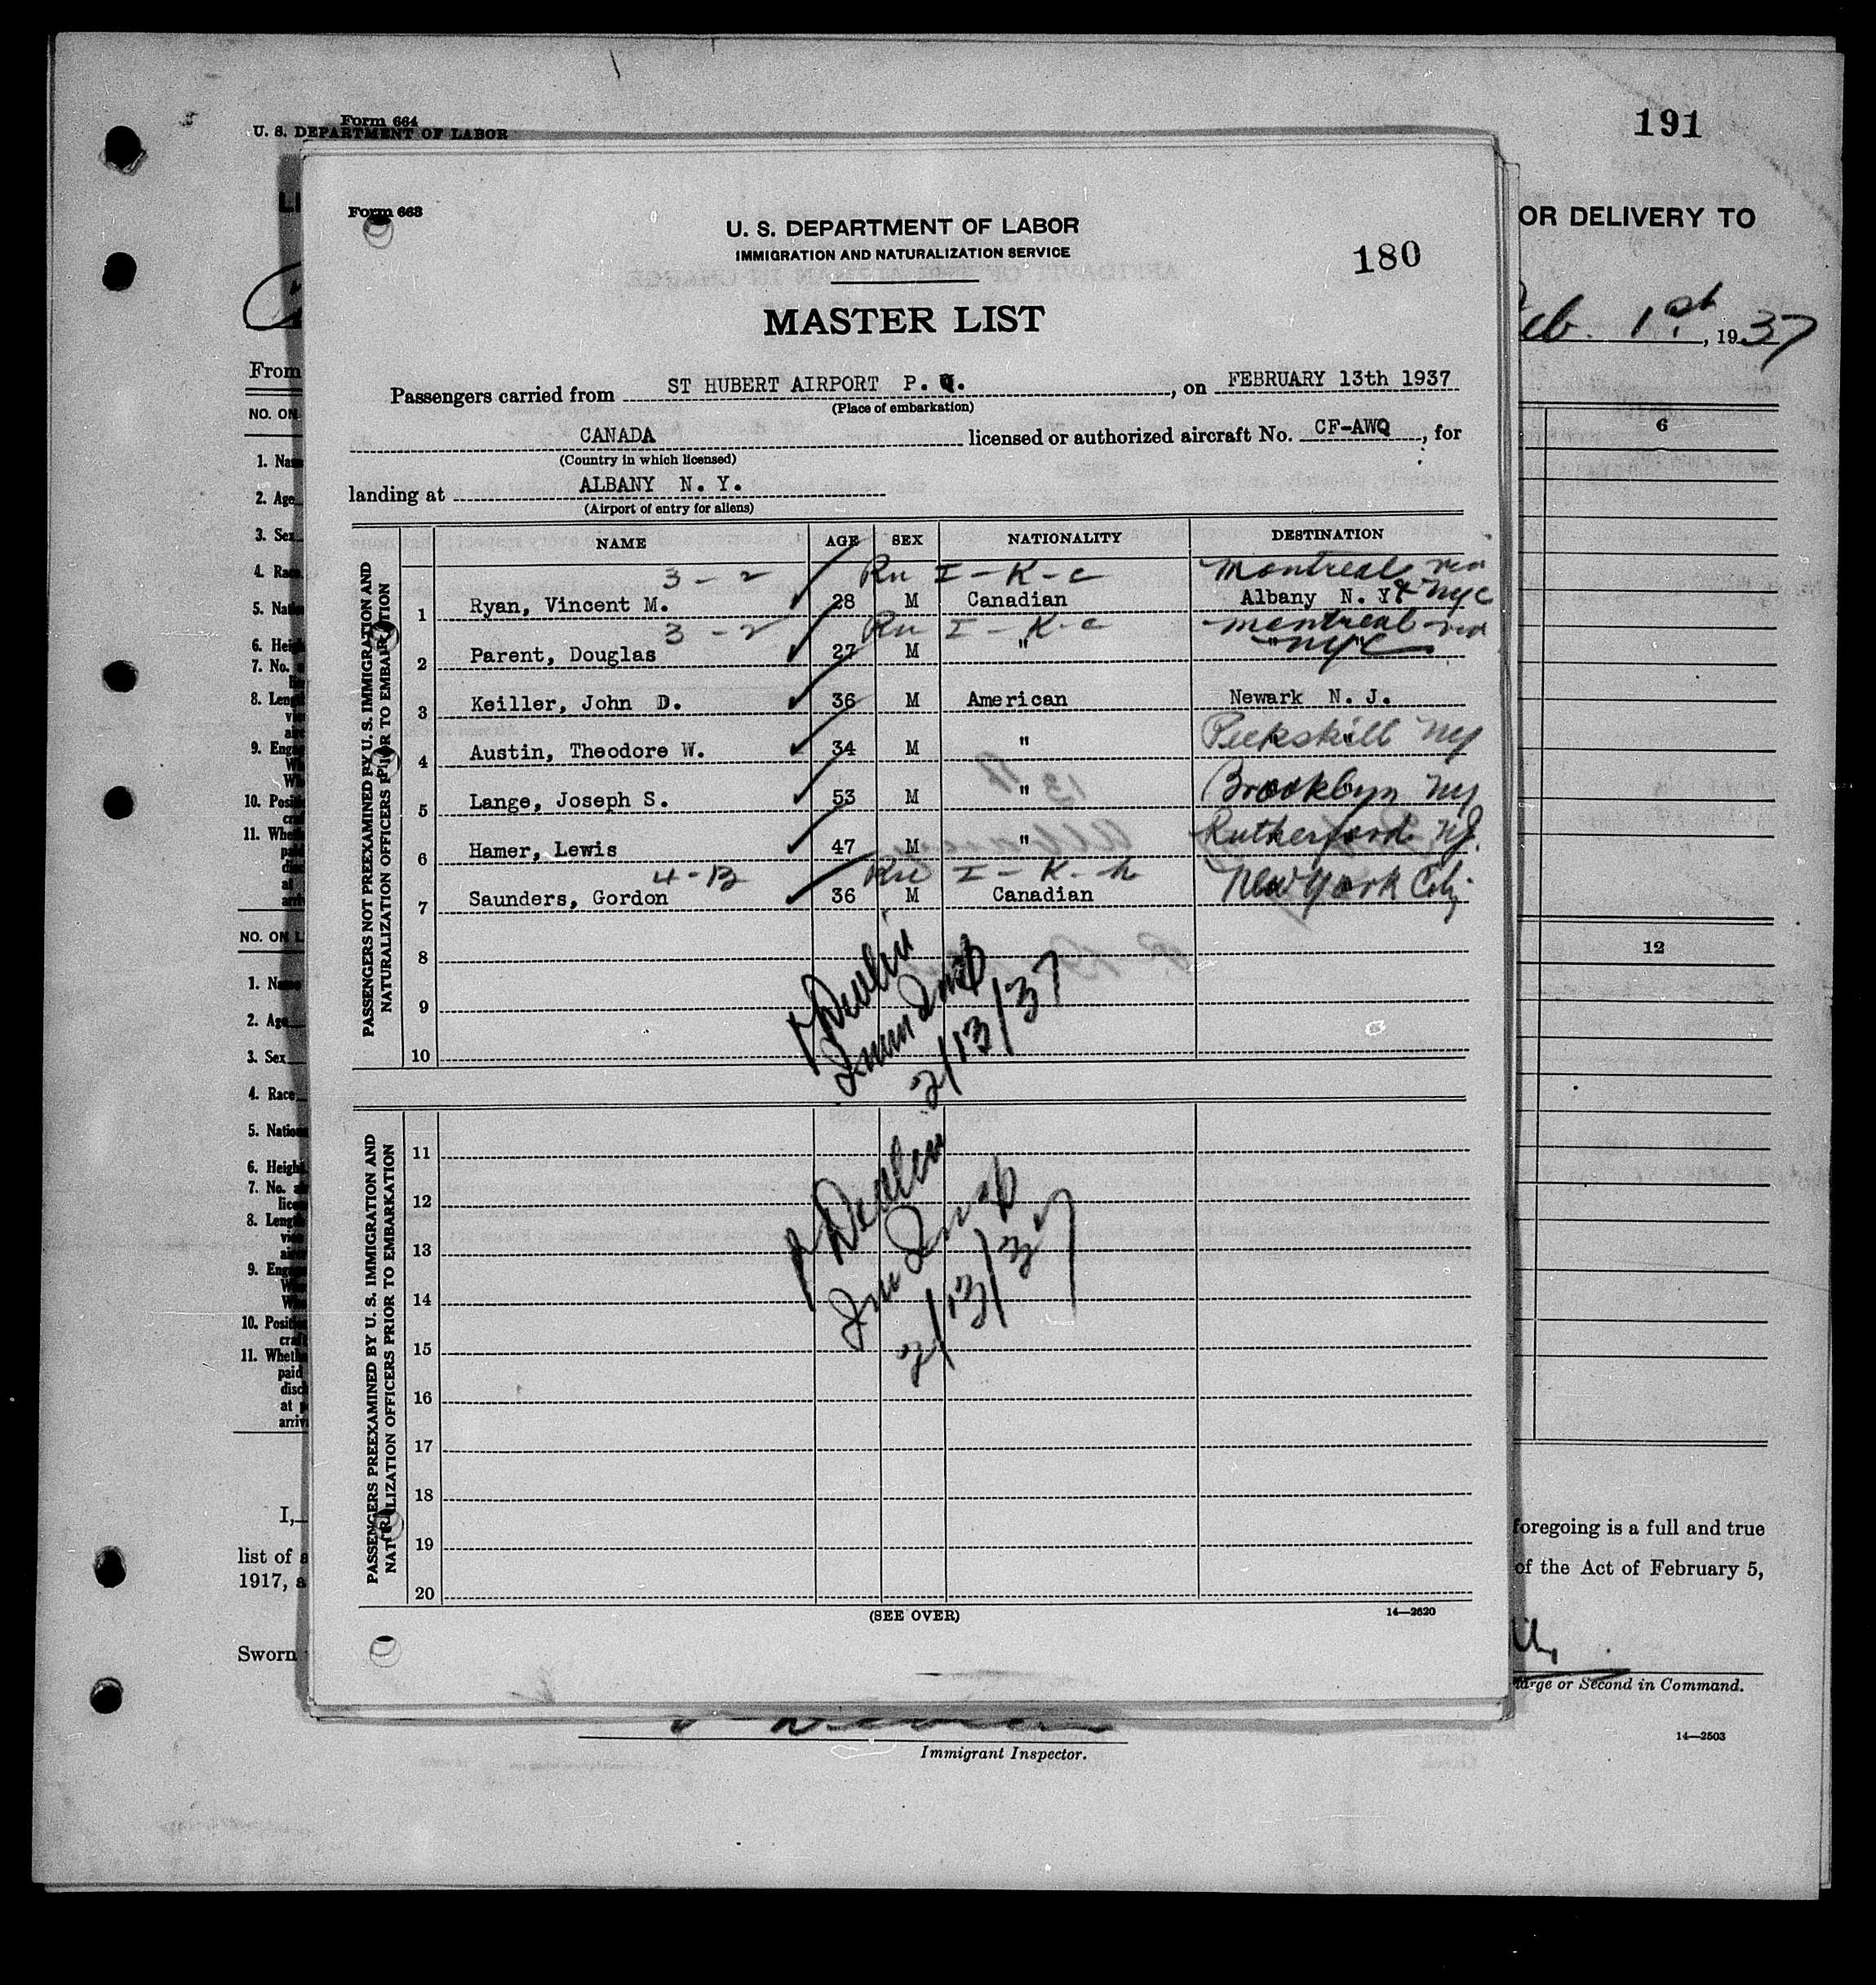 Form 664
U. S. DEPARTMENT OF LABOR
191
OR DELIVERY TO
Feb. 1st, 1937
From
NO. ON
6
1. Nam
2. Age
3. Sex
4. Race
5. Natio
6. Heig
7. No.
8. Leng
9. Enga
10. Positi
11. Wheth
NO. ON L
12
1. Name
2. Age
3. Sex
4. Race
5. Nation
6. Height
7. No.
8. Length
9. Enga
10. Positi
11. Wheth
paid
disch
at p
arriv
I,
foregoing is a full and true
list of a
of the Act of February 5,
1917, a
Sworn
arge or Second in Command.
14—2503
Immigrant Inspector.
Form 663
U. S. DEPARTMENT OF LABOR
IMMIGRATION AND NATURALIZATION SERVICE
180
MASTER LIST
Passengers carried from ST HUBERT AIRPORT P. Q., on FEBRUARY 13th 1937
(Place of embarkation)
CANADA licensed or authorized aircraft No. CF-AWQ, for
(Country in which licensed)
landing at ALBANY N. Y.
(Airport of entry for aliens)
NAME AGE SEX NATIONALITY DESTINATION
PASSENGERS NOT PREEXAMINED BY U. S. IMMIGRATION AND NATURALIZATION OFFICERS PRIOR TO EMBARKATION
3-2 I-K-c Montreal via
1 Ryan, Vincent M. 28 M Canadian Albany N. Y. & NYC
3-2 I-K-c Montreal via
2 Parent, Douglas 27 M " " NYC
3 Keiller, John D. 36 M American Newark N. J.
4 Austin, Theodore W. 34 M " Peekskill NY
5 Lange, Joseph S. 53 M " Brooklyn NY
6 Hamer, Lewis 47 M " Rutherford NJ.
4-B I-K-h
7 Saunders, Gordon 36 M Canadian New York City
8
9
10
Devlin
Imm Insp
2/13/37
PASSENGERS PREEXAMINED BY U. S. IMMIGRATION AND NATURALIZATION OFFICERS PRIOR TO EMBARKATION
11
12
13
14
15
16
17
18
19
20
Devlin
Imm Insp
2/13/37
(SEE OVER)
14—2620